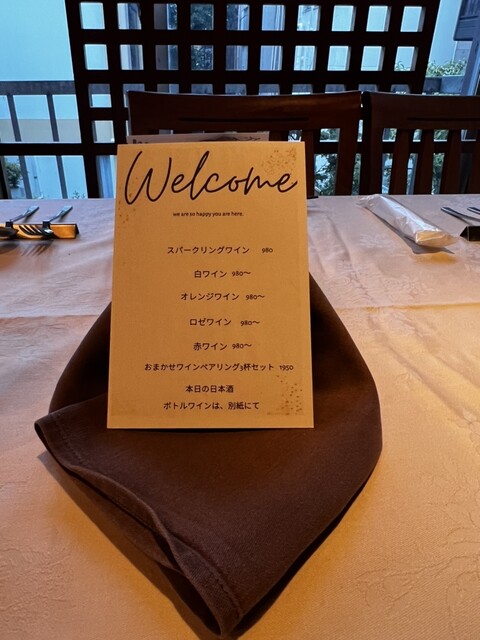 Welcome
we are so happy you are here.
スパークリングワイン 980
白ワイン 980〜
オレンジワイン 980〜
ロゼワイン 980〜
赤ワイン 980〜
おまかせワインペアリング3杯セット 1950
本日の日本酒
ボトルワインは、別紙にて